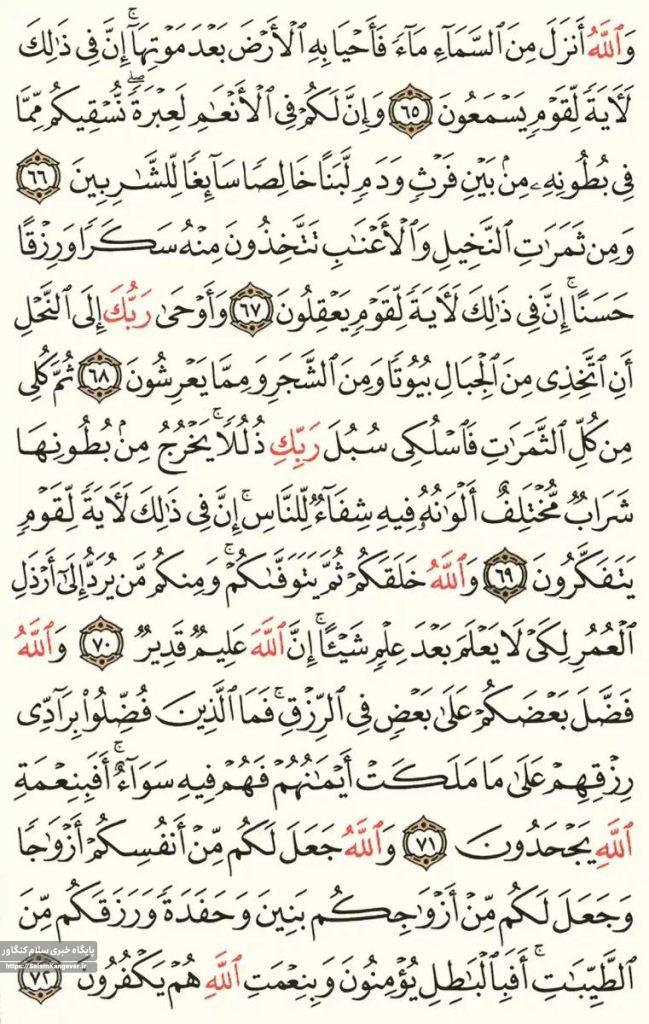 وَٱللَّهُ أَنزَلَ مِنَ ٱلسَّمَآءِ مَآءً فَأَحۡيَا بِهِ ٱلۡأَرۡضَ بَعۡدَ مَوۡتِهَآۚ إِنَّ فِي ذَٰلِكَ
لَأٓيَةً لِّقَوۡمٍ يَسۡمَعُونَ ٦٥ وَإِنَّ لَكُمۡ فِي ٱلۡأَنۡعَٰمِ لَعِبۡرَةًۖ نُّسۡقِيكُم مِّمَّا
فِي بُطُونِهِۦ مِنۢ بَيۡنِ فَرۡثٍ وَدَمٍ لَّبَنًا خَالِصًا سَآئِغًا لِّلشَّٰرِبِينَ ٦٦
وَمِن ثَمَرَٰتِ ٱلنَّخِيلِ وَٱلۡأَعۡنَٰبِ تَتَّخِذُونَ مِنۡهُ سَكَرًا وَرِزۡقًا
حَسَنًاۚ إِنَّ فِي ذَٰلِكَ لَأٓيَةً لِّقَوۡمٍ يَعۡقِلُونَ ٦٧ وَأَوۡحَىٰ رَبُّكَ إِلَى ٱلنَّحۡلِ
أَنِ ٱتَّخِذِي مِنَ ٱلۡجِبَالِ بُيُوتًا وَمِنَ ٱلشَّجَرِ وَمِمَّا يَعۡرِشُونَ ٦٨ ثُمَّ كُلِي
مِن كُلِّ ٱلثَّمَرَٰتِ فَٱسۡلُكِي سُبُلَ رَبِّكِ ذُلُلًاۚ يَخۡرُجُ مِنۢ بُطُونِهَا
شَرَابٌ مُّخۡتَلِفٌ أَلۡوَٰنُهُۥ فِيهِ شِفَآءٌ لِّلنَّاسِۚ إِنَّ فِي ذَٰلِكَ لَأٓيَةً لِّقَوۡمٍ
يَتَفَكَّرُونَ ٦٩ وَٱللَّهُ خَلَقَكُمۡ ثُمَّ يَتَوَفَّىٰكُمۡۚ وَمِنكُم مَّن يُرَدُّ إِلَىٰٓ أَرۡذَلِ
ٱلۡعُمُرِ لِكَيۡ لَا يَعۡلَمَ بَعۡدَ عِلۡمٍ شَيۡـًٔاۚ إِنَّ ٱللَّهَ عَلِيمٌ قَدِيرٌ ٧٠ وَٱللَّهُ
فَضَّلَ بَعۡضَكُمۡ عَلَىٰ بَعۡضٍ فِي ٱلرِّزۡقِۚ فَمَا ٱلَّذِينَ فُضِّلُواْ بِرَآدِّي
رِزۡقِهِمۡ عَلَىٰ مَا مَلَكَتۡ أَيۡمَٰنُهُمۡ فَهُمۡ فِيهِ سَوَآءٌۚ أَفَبِنِعۡمَةِ
ٱللَّهِ يَجۡحَدُونَ ٧١ وَٱللَّهُ جَعَلَ لَكُم مِّنۡ أَنفُسِكُمۡ أَزۡوَٰجًا
وَجَعَلَ لَكُم مِّنۡ أَزۡوَٰجِكُم بَنِينَ وَحَفَدَةً وَرَزَقَكُم مِّنَ
ٱلطَّيِّبَٰتِۚ أَفَبِٱلۡبَٰطِلِ يُؤۡمِنُونَ وَبِنِعۡمَتِ ٱللَّهِ هُمۡ يَكۡفُرُونَ ٧٢
پایگاه خبری سلام کنگاور
https://SalamKangavar.ir